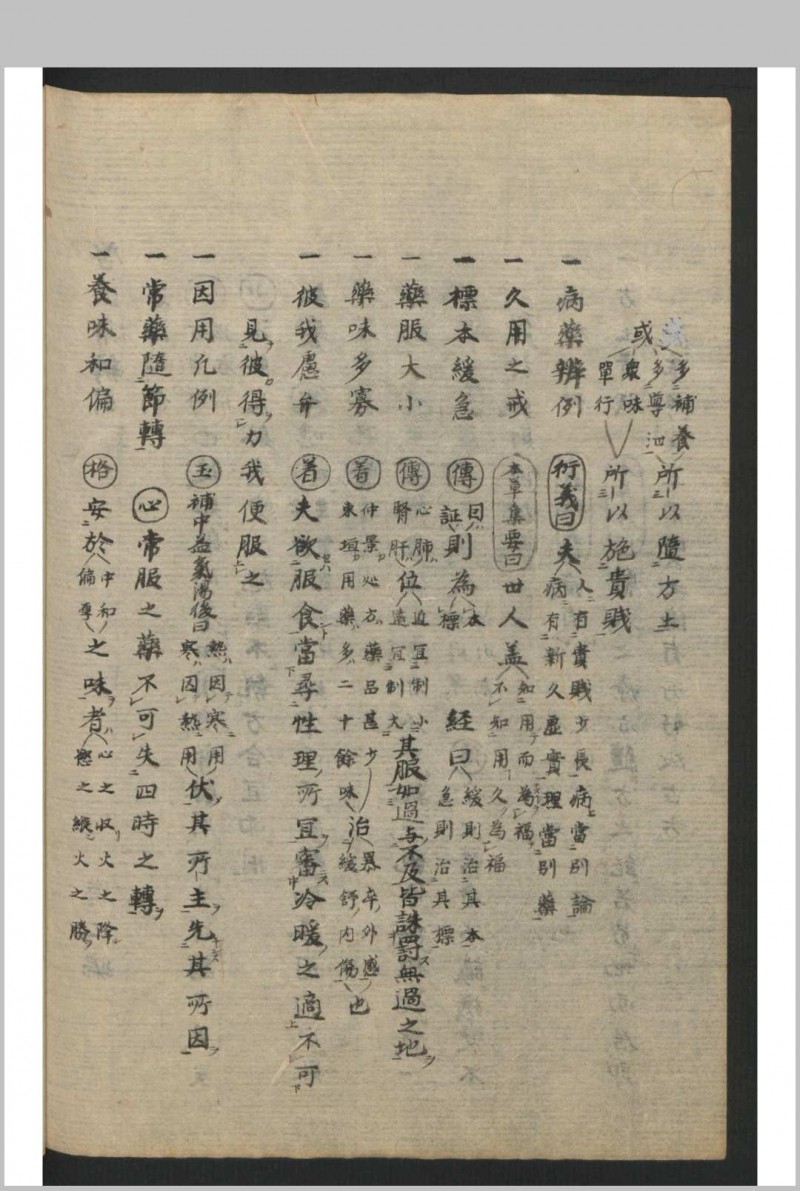 或 多補養 多尋 所以隨方土
衆味 單行 所以施貴賤
一病薬辨例 衍義曰 夫 人有貴賤少長病當別論 病有新久虚實理當別薬
一久用之戒 本草集要曰 世人盖 知用而為福 不知用久為福
一標本緩急 傳 因 証 則為 本 標 經曰 緩則治其本 急則治其標
一薬服大小 傳 心肺 腎肝 位 近宜制小 遠宜制大 其服如過与不及皆誅罸無過之地
一薬味多寡 著 仲景処方薬品甚少 東垣用薬多二十餘味 治 暴卒外感 緩舒内傷 也
一彼我慮弁 著 夫欲服食當尋性理所宜審冷暖之適不可
見彼得力我便服之
一因用凡例 玉 補中益氣湯後曰 熱因寒用 寒因熱用 伏其所主先其所因
一常薬隨節轉 心 常服之薬不可失四時之轉
一養味和偏 格 安於 中和 偏尋 之味者 心之収火之降 慾之縦火之勝